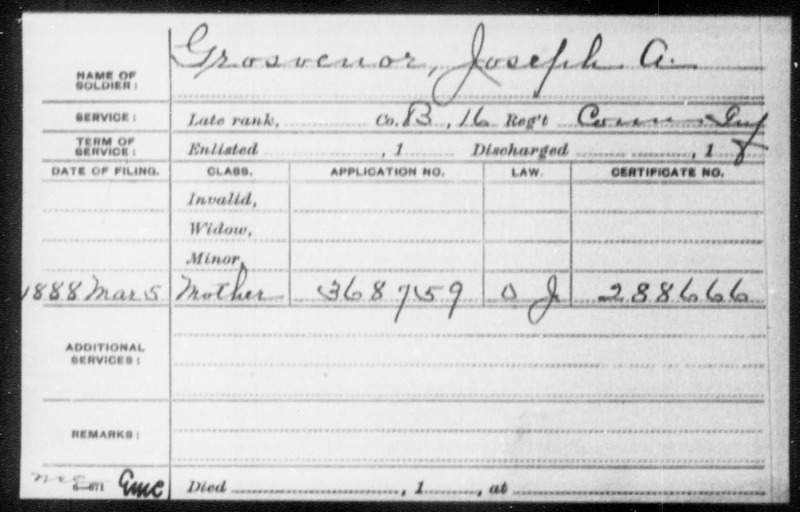 Grosvenor, Joseph A.
NAME OF
SOLDIER:
SERVICE: Late rank, Co. B, 16 Reg't Conn. Inf
TERM OF
SERVICE: Enlisted , 1 Discharged , 1
DATE OF FILING. CLASS. APPLICATION NO. LAW. CERTIFICATE NO.
Invalid,
Widow,
Minor,
1888 Mar 5 Mother 368759 O J 288666
ADDITIONAL
SERVICES:
REMARKS:
Died , 1 , at